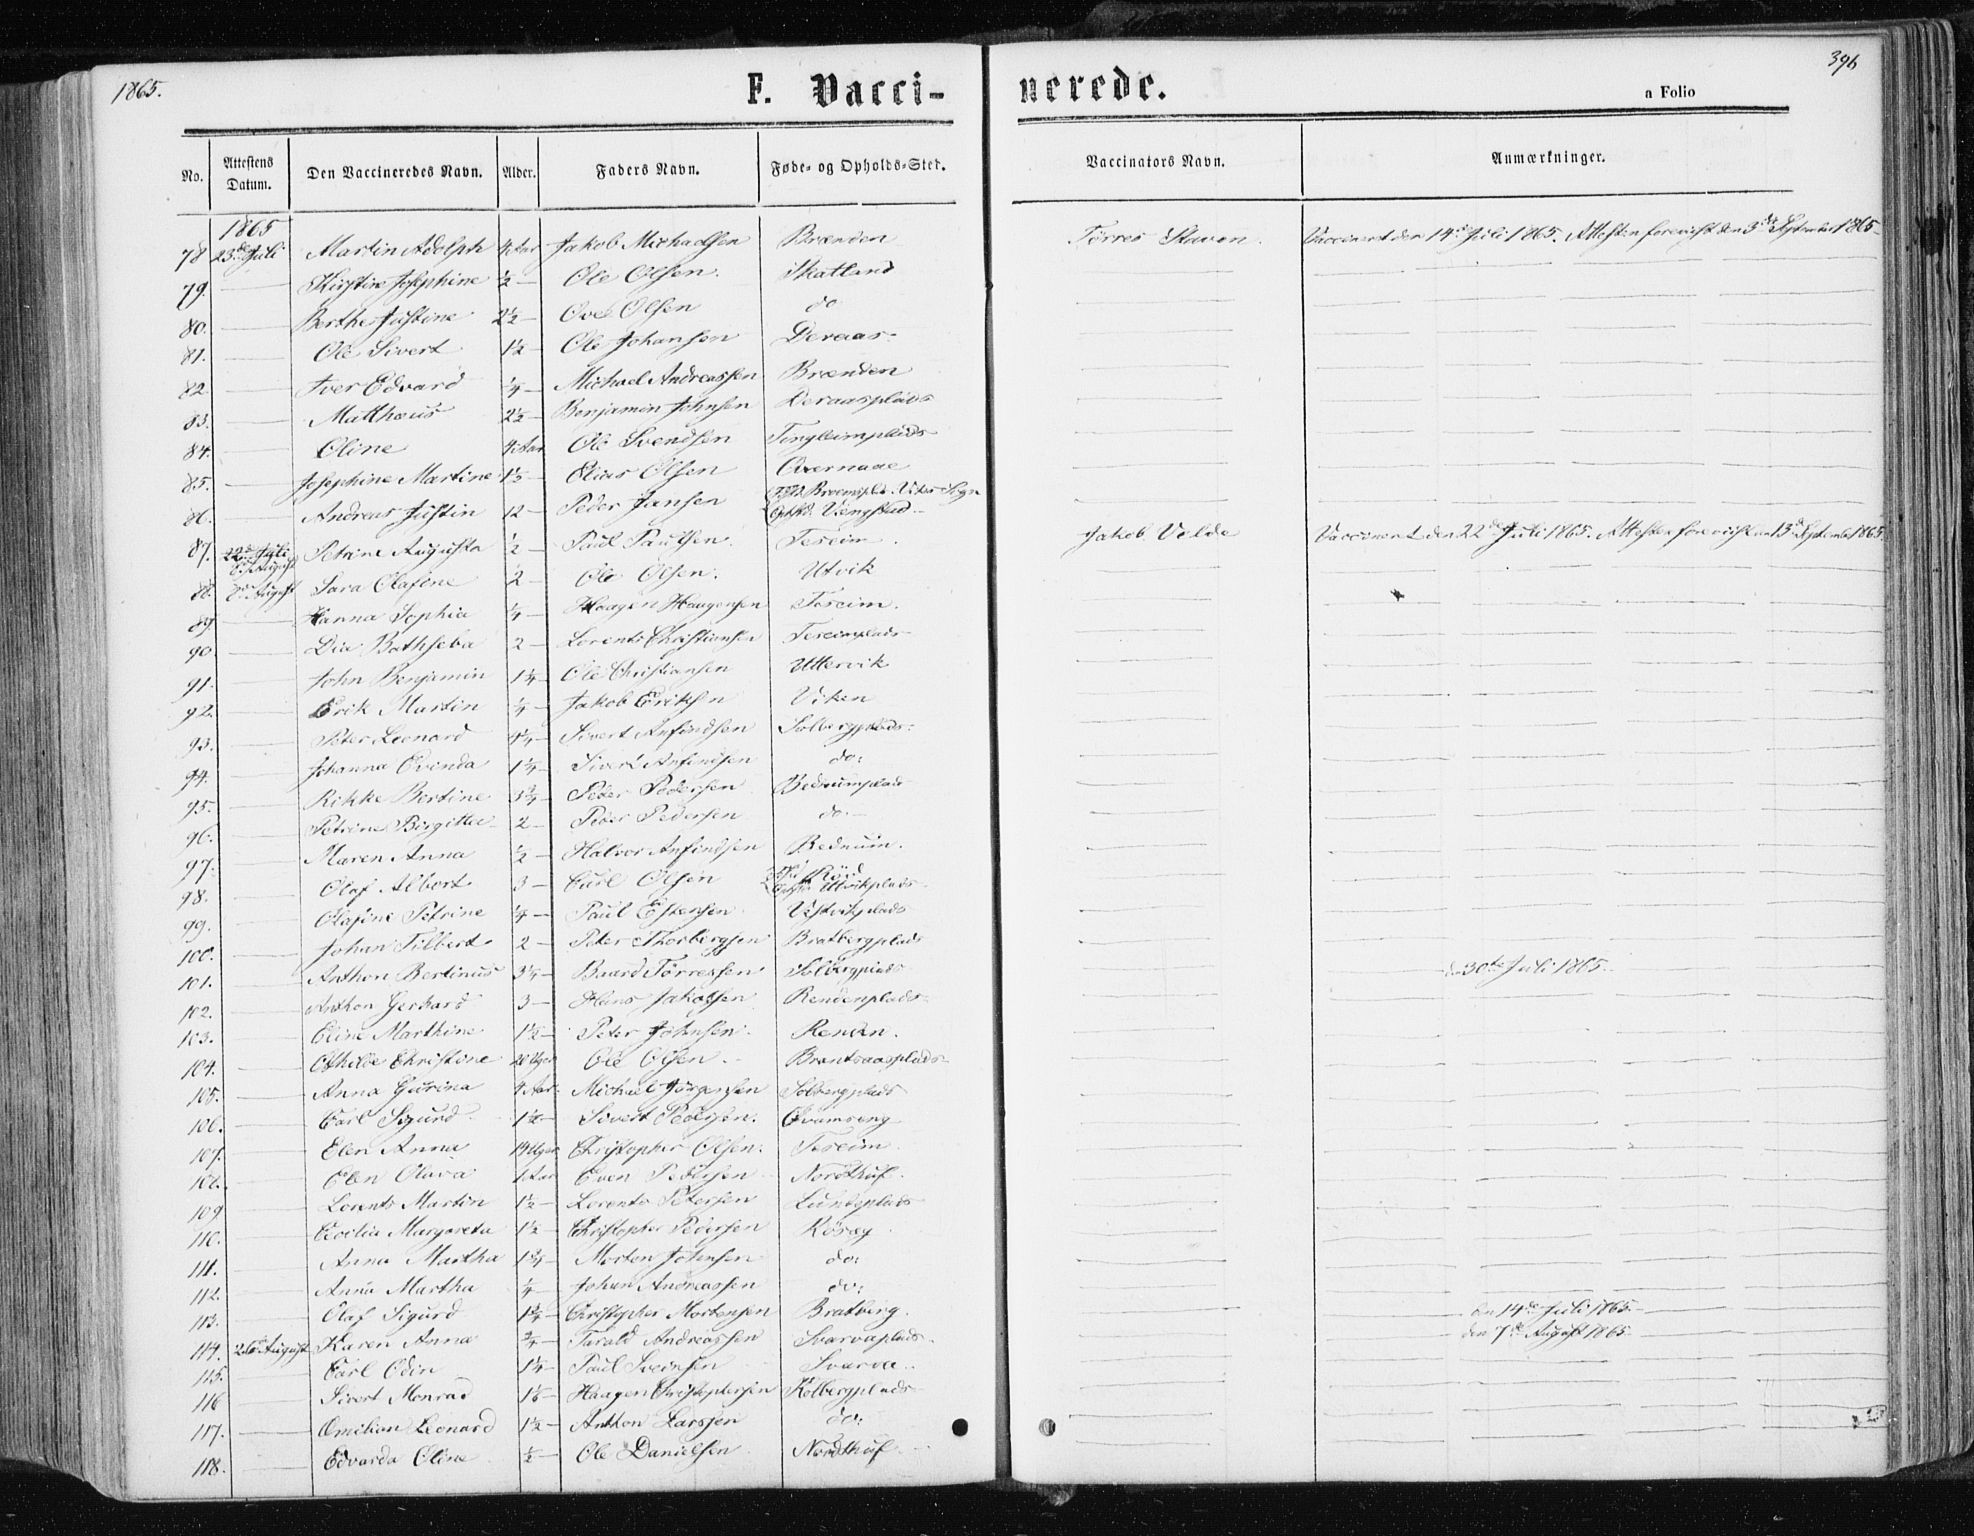 1865.
F. Vacci-
nerede.
a Folio
396
No.
Attestens Datum.
Den Vaccineredes Navn.
Alder.
Faders Navn.
Føde- og Opholds-Sted.
Vaccinators Navn.
Anmærkninger.
1865
78 23de Juli Martin Adolph 4 Aar Jakob Michaelsen Brænden Tørres Stavem. Vaccineret den 14de Juli 1865. Attesten forevist den 3die September 1865
79. Kirstine Josephine ½ — Ole Olsen. Skatland
80. Berthe Justine 2½ — Ove Olsen do
81. Ole Sivert 1½ — Ole Johansen Deraas.
82. Iver Edvard ¼ — Michael Andreassen Brænden
83. Matthæus 2½ — Benjamin Johnsen Deraasplads
84. Oline 4 Aar Ole Svendsen
85. Josephine Martine Elias Olsen
86. Andreas Justin 12 — Peder Jansen Vengstad
87. 22de Juli Petrine Augusta ½ — Paul Paulsen. Teseim. Jakob Velde Vaccineret den 22de Juli 1865. Attesten forevist den 13de September 1865.
88. August Sara Olafine 2 — Ole Olsen. Utvik
89 Hanna Sophia ¼ — Haagen Haagensen Teseim.
90 Dia Bathseba 2 — Lorents Christiansen Teseimplads
91. John Benjamin 1¼ — Ole Christiansen Uttervik
92. Erik Martin ¼ — Jakob Eriksen Viken
93. Peter Leonard Sivert Anfindsen Solbergplads.
94. Johanna Evinda 1¼ — Sivert Anfindsen do:
95. Rikke Bertine 3¾ — Peder Pedersen
96. Petrine Birgitta 2 — Peder Pedersen do.
97. Maren Anna ½ — Halvor Anfindsen
98. Olaf Albert 3 — Carl Olsen Utvikplads
99. Olafine Petrine ¼ — Paul Estensen Vestvikplads
100. Johan Tilbert 2 — Peter Thorbergsen Bratbergplads
101. Anthon Bertinus 3¼ — Baard Tørressen Solbergplads den 30te Juli 1865.
102. Anthon Gerhard 3 — Hans Jakobsen Rendenplads
103. Eline Marthine 1½ — Peter Johnsen. Renden.
104. Othilde Christine 20 Uger Ole Olsen. Brantsaasplads
105. Anna Gurina 4 Aar Michael Jørgensen Solbergplads
106. Carl Sigurd 1½ — Sivert Pedersen. Qvamseng
107. Elen Anna 14 Uger Christopher Olsen. Teseim
108. Elen Olava Aar Even Pedersen Nordthuf.
109 Lorents Martin 1½ — Lorents Petersen Lundeplads
110. Cecilia Margareta 1½ — Christopher Pedersen Røseg
111. Anna Martha 1¾ — Morten Johnsen do:
112. Anna Martha ¼ — Johan Andreassen do:
113. Olaf Sigurd 1¾ — Christopher Mortensen Bratberg. den 14de Juli 1865.
114. August Karen Anna ¾ — Tarald Andreassen Svarvaplads. den 7de August 1865.
115. Carl Odin 1¼ — Paul Svensen Svarva.
116 Sivert Monrad Haagen Christophersen Kolbergplads
117. Emilian Leonard 1½ — Anthon Larssen do:
118. Edvarda Oline. ½ — Ole Danielsen Nordthuf.